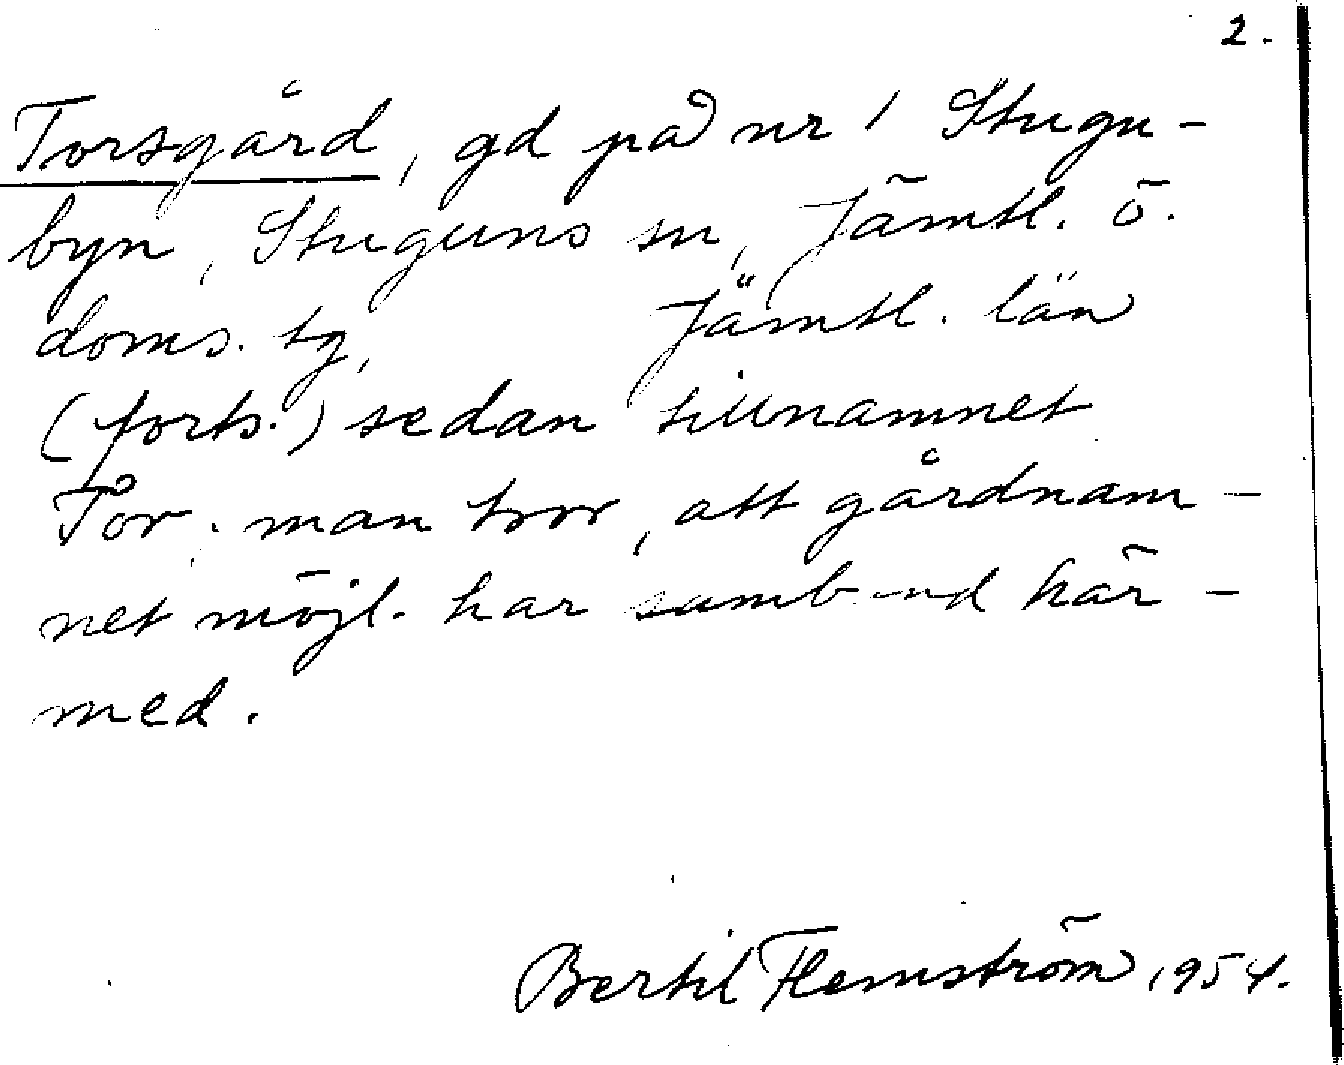 2.
Torsgård, gd på nr 1 Stugu-
byn, Stuguns sn, Jämtl. ö.
doms. tg, Jämtl. län
(forts.) sedan tillnamnet
Tor. man tror, att gårdnam-
net möjl. har samband här-
med.
Bertil Flemström 1954.